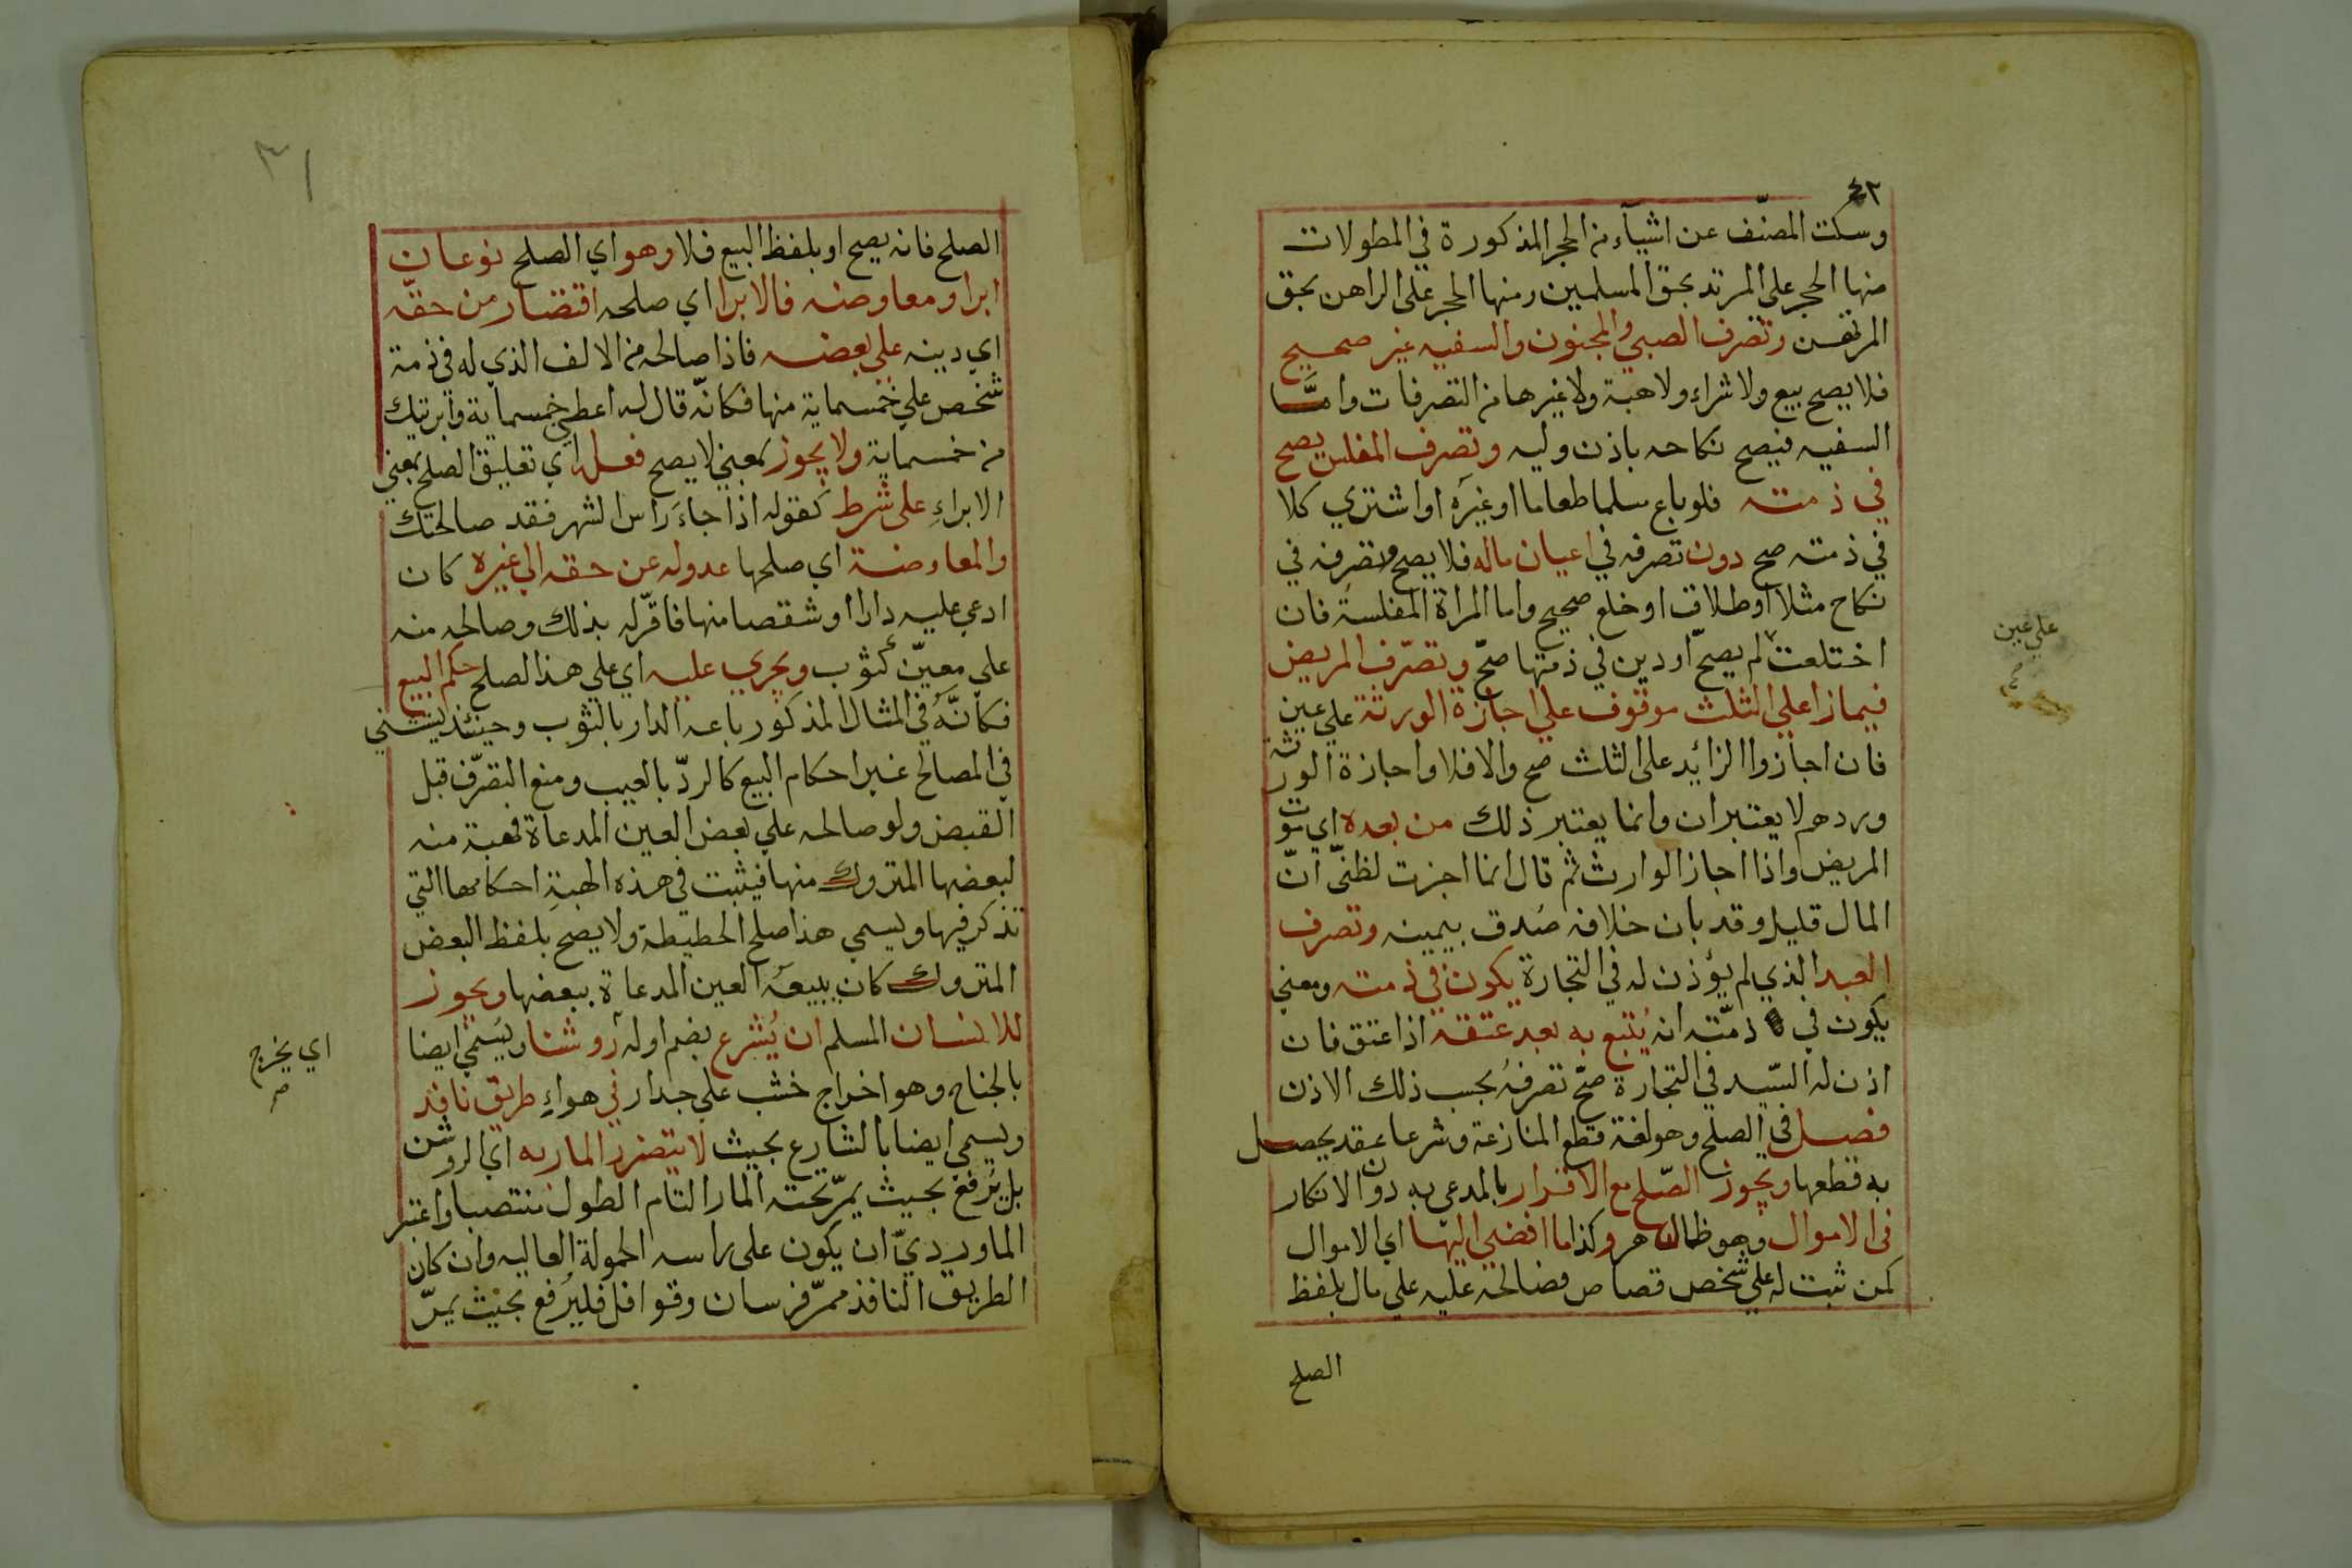 ٤٢
وسكت المصنّف عن اشيآء من الحجر المذكورة في المطولات
منها الحجر على المرتد بحق المسلمين ومنها الحجر على الراهن بحق
المرتهن وتصرف الصبي والمجنون والسفيه غير صحيح
فلا يصح بيع ولا شراء ولا هبة ولا غيرها من التصرفات وامّا
السفيه فيصح نكاحه باذن وليه وتصرف المفلس يصح
في ذمته فلو باع سلما طعاما او غيره او اشتري كلا
في ذمته صح دون تصرفه في اعيان ماله فلا يصح وتصرفه في
نكاح مثلا او طلاق او خلع صحيح واما المراة المفلسة فان
اختلعت لم يصحّ او دين في ذمتها صحّ وتصرّف المريض
فيما زاعلي الثلث موقوف علي اجازة الورثة علي عين
فان اجازوا الزائد على الثلث صح والا فلا واجازة الورثة
وردهم لا يعتبران وانما يعتبر ذلك من بعده اي موت
المريض واذا اجاز الوارث ثم قال انما اجزت لظنّي انّ
المال قليل وقد بان خلافه صُدق بيمينه وتصرف
العبد الذي لم يؤذن له في التجارة يكون في ذمته ومعني
يكون في ذمّته انه يُتبع به بعد عتقه اذا عتق فان
اذن له السّيد في التجارة صحّ تصرفهُ بحسب ذلك الاذن
فصل في الصلح وهو لغة قطع المنازعة وشرعا عقد يحصل
به قطعها ويجوز الصّلح مع الاقرار بالمدعى به دون الانكار
في الاموال وهو ظاهر وكذا ما افضي اليها اي الاموال
كمن ثبت له علي شخص قصاص فصالحه عليه علي مال بلفظ
الصلح
علي عين
٣١
الصلح فانه يصح او بلفظ البيع فلا وهو اي الصلح نوعان
ابرا ومعاوضه فالابرا اي صلحه اقتصار من حقّه
اي دينه علي بعضه فاذا صالحه من الالف الذي له في ذمة
شخص علي خمسماية منها فكانّه قال له اعطني خمسماية وابريتك
من خمسماية ولا يجوز بمعني لا يصح فعله اي تعليق الصلح بمعني
الابراءِ على شرط كقوله اذا جاءَ راس الشهر فقد صالحتك
والمعاوضة اي صلحها عدوله عن حقه الي غيره كان
ادعي عليه دارا او شقصا منها فاقرّ له بذلك وصالحه منه
علي معيّن كثوب ويجري عليه اي علي هذا الصلح حكم البيع
فكانّهُ في المثال المذكور باعه الدار بالثوب وحينئذ يثبت
في المصالح عنه احكام البيع كالردّ بالعيب ومنع التصرّف قبل
القبض ولو صالحه علي بعض العين المدعاة فهبة منه
لبعضها المتروك منها فيثبت في هذه الهبةِ احكامها التي
تذكر فيها ويسمي هذا صلح الحطيطة ولا يصح بلفظ البعض
المتروك كان يبيعَه العين المدعاة ببعضها ويجوز
للانسان المسلم ان يُشرع بضم اوله روشنا ويسَمي ايضا
بالجناح وهو اخراج خشب علي جدار في هواءِ طريق نافد
ويسمي ايضا بالشارع بحيث لا يتضرر المار به اي الروشن
بل يُرفع بحيث يمرّ تحته المار التام الطول منتصبا واعتبر
الماورديّ ان يكون على راسه الحمولة العاليه وان كان
الطريق النافذ ممرّ فرسان وقوافل فليُرفع بحيث يمرّ
اي يخرج